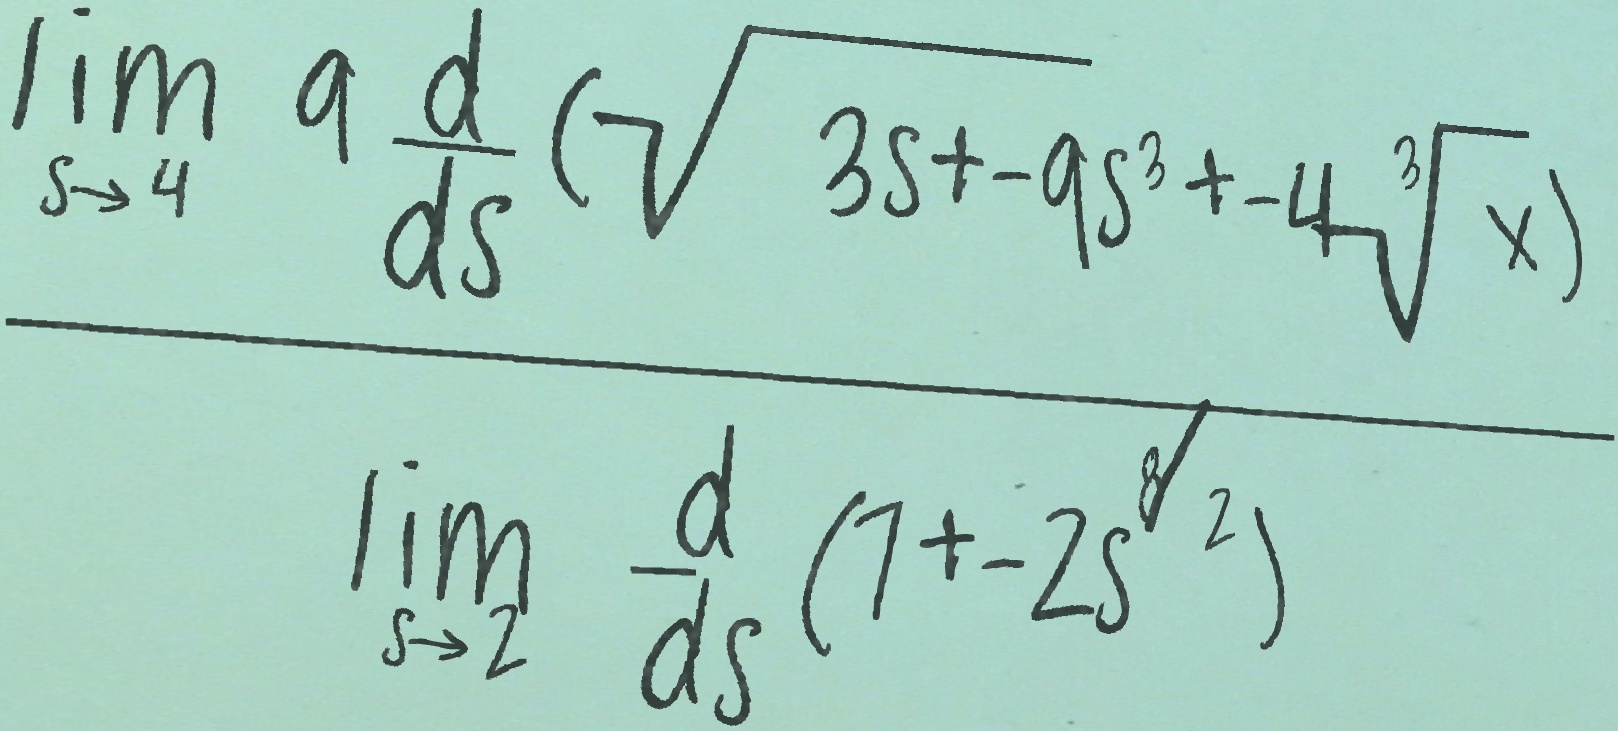 lim s→4 9 d/ds (√3s+-9s³+-4∛x)
lim s→2 d/ds (7+-2s^8/2)